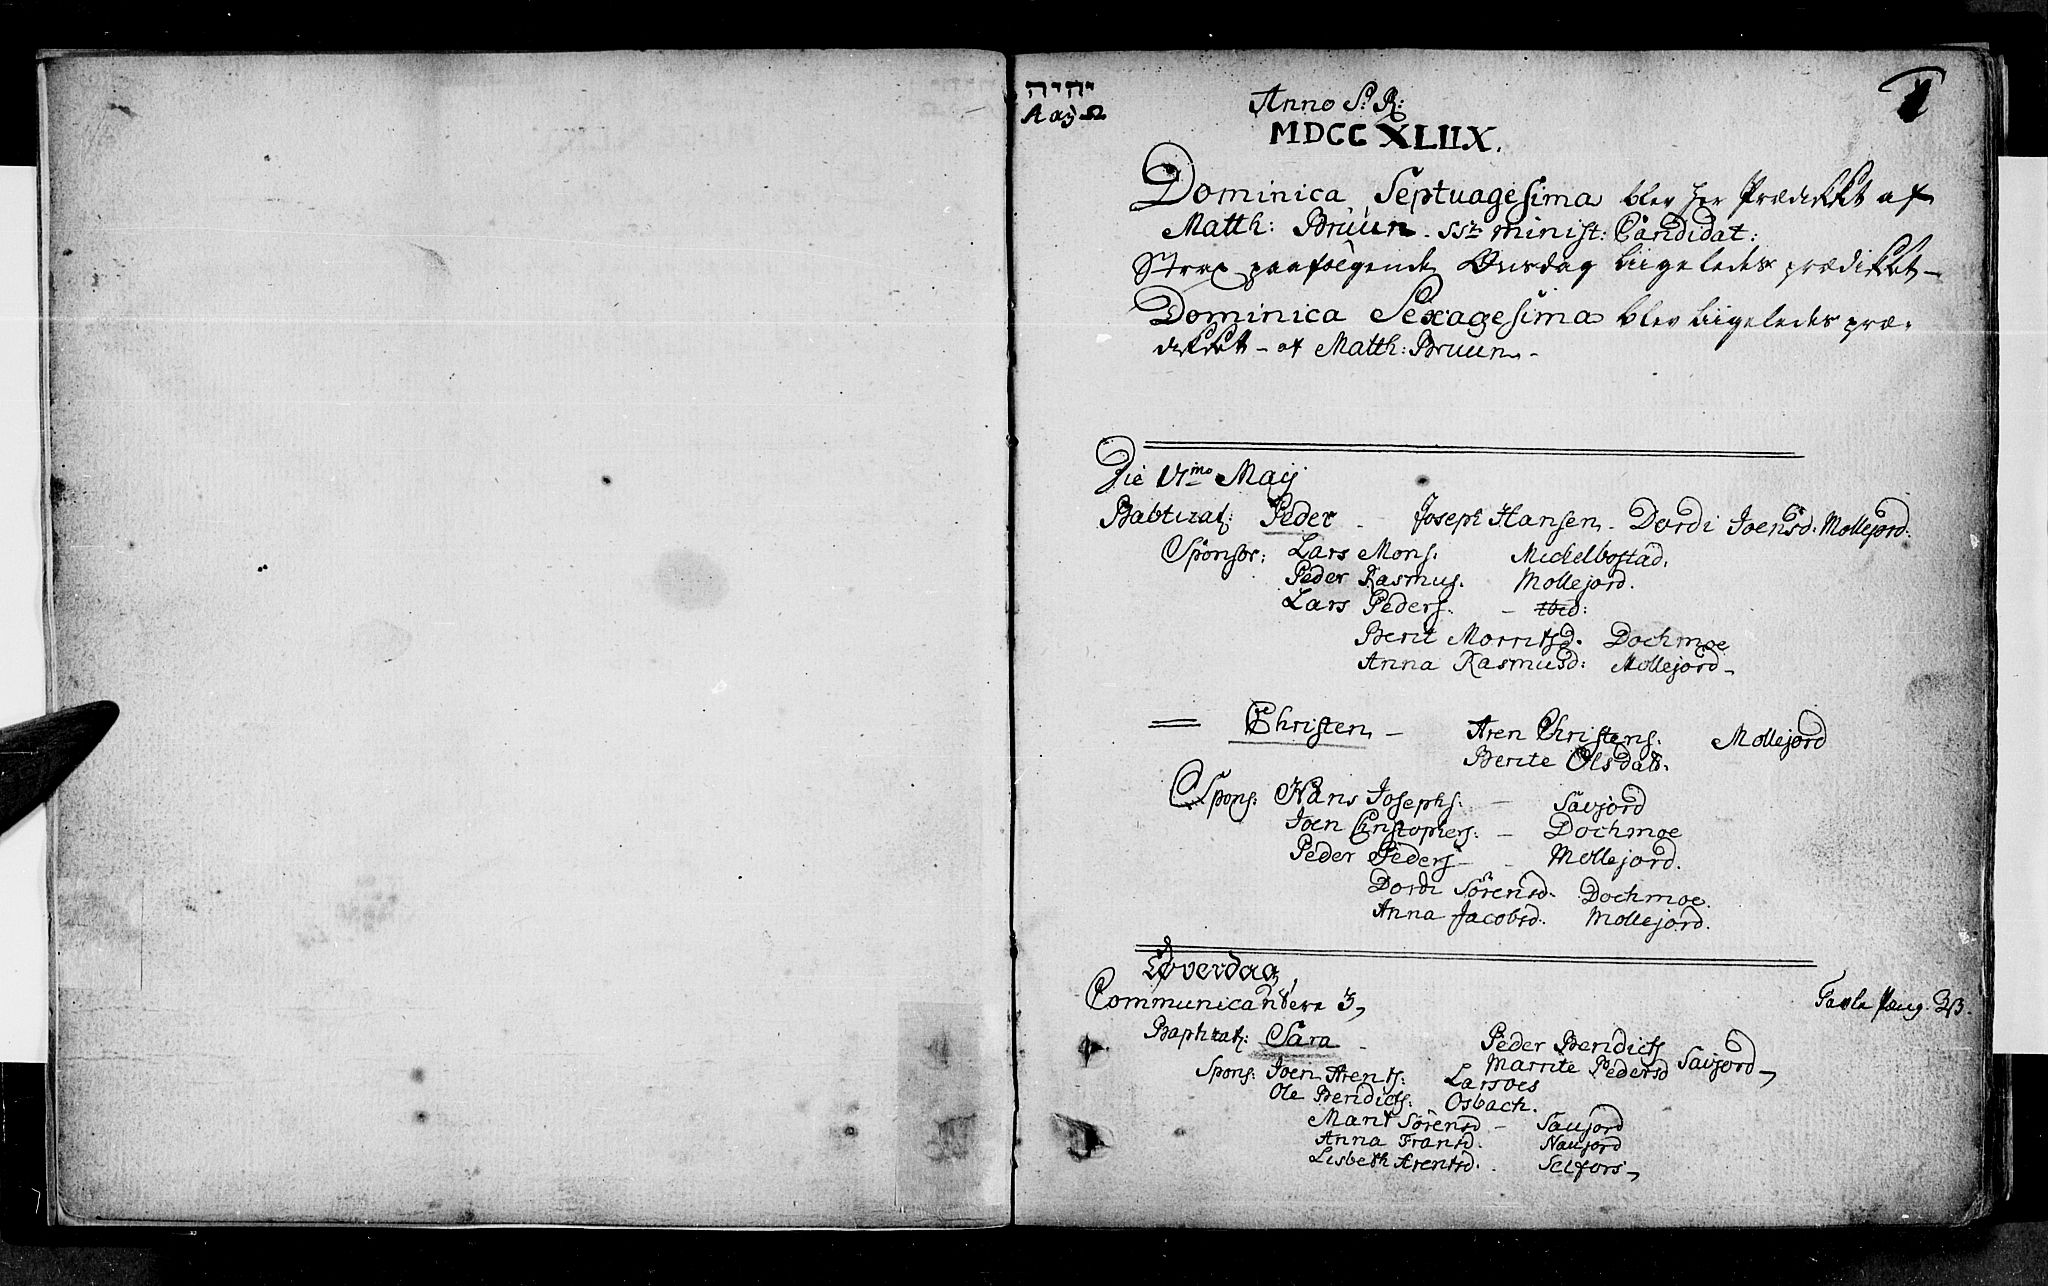 יהיה
A og Ω
Anno S: R:
MDCCXLIIX.
1
Dominica Septuagesima blev her Prædikket af
Matth: Bruun. SSæ minist: Candidat:
Strax paafølgende Onsdag liigeledes prædikket –
Dominica Sexagesima blev liigeledes præ-
dikket – af Matth: Bruun –
Die 17mo Maij
Babtizat: Peder – Joseph Hansen – Dordi Joensd. Mollejord.
Sponsor: Lars Mons. Michelbostad.
Peder Rasmus. Mollejord.
Lars Peders. – Ibid:
Berit Morritsd. Dochmoe
Anna Rasmusd: Mollejord –
= Christen – Aren Christens. Mollejord
Berite Olsdat.
Spons: Hans Josephs. – Savjord
Joen Christophers. – Dochmoe
Peder Peders – – Mollejord.
Dordi Sörensd. Dochmoe.
Anna Jacobsd. Mollejord.
Løverdag,
Communicantere 3, Tavle Peng. 2 ß.
Baptizat: Sara – Peder Bendicts
Marrite Pedersd Savjord,
Spons: Joen Arents: Larsoes
Ole Bendicts: Osbach.
Marit Sörensd – Saujord
Anna Fransd. Naujord
Lisbeth Arentsd. Selfors,